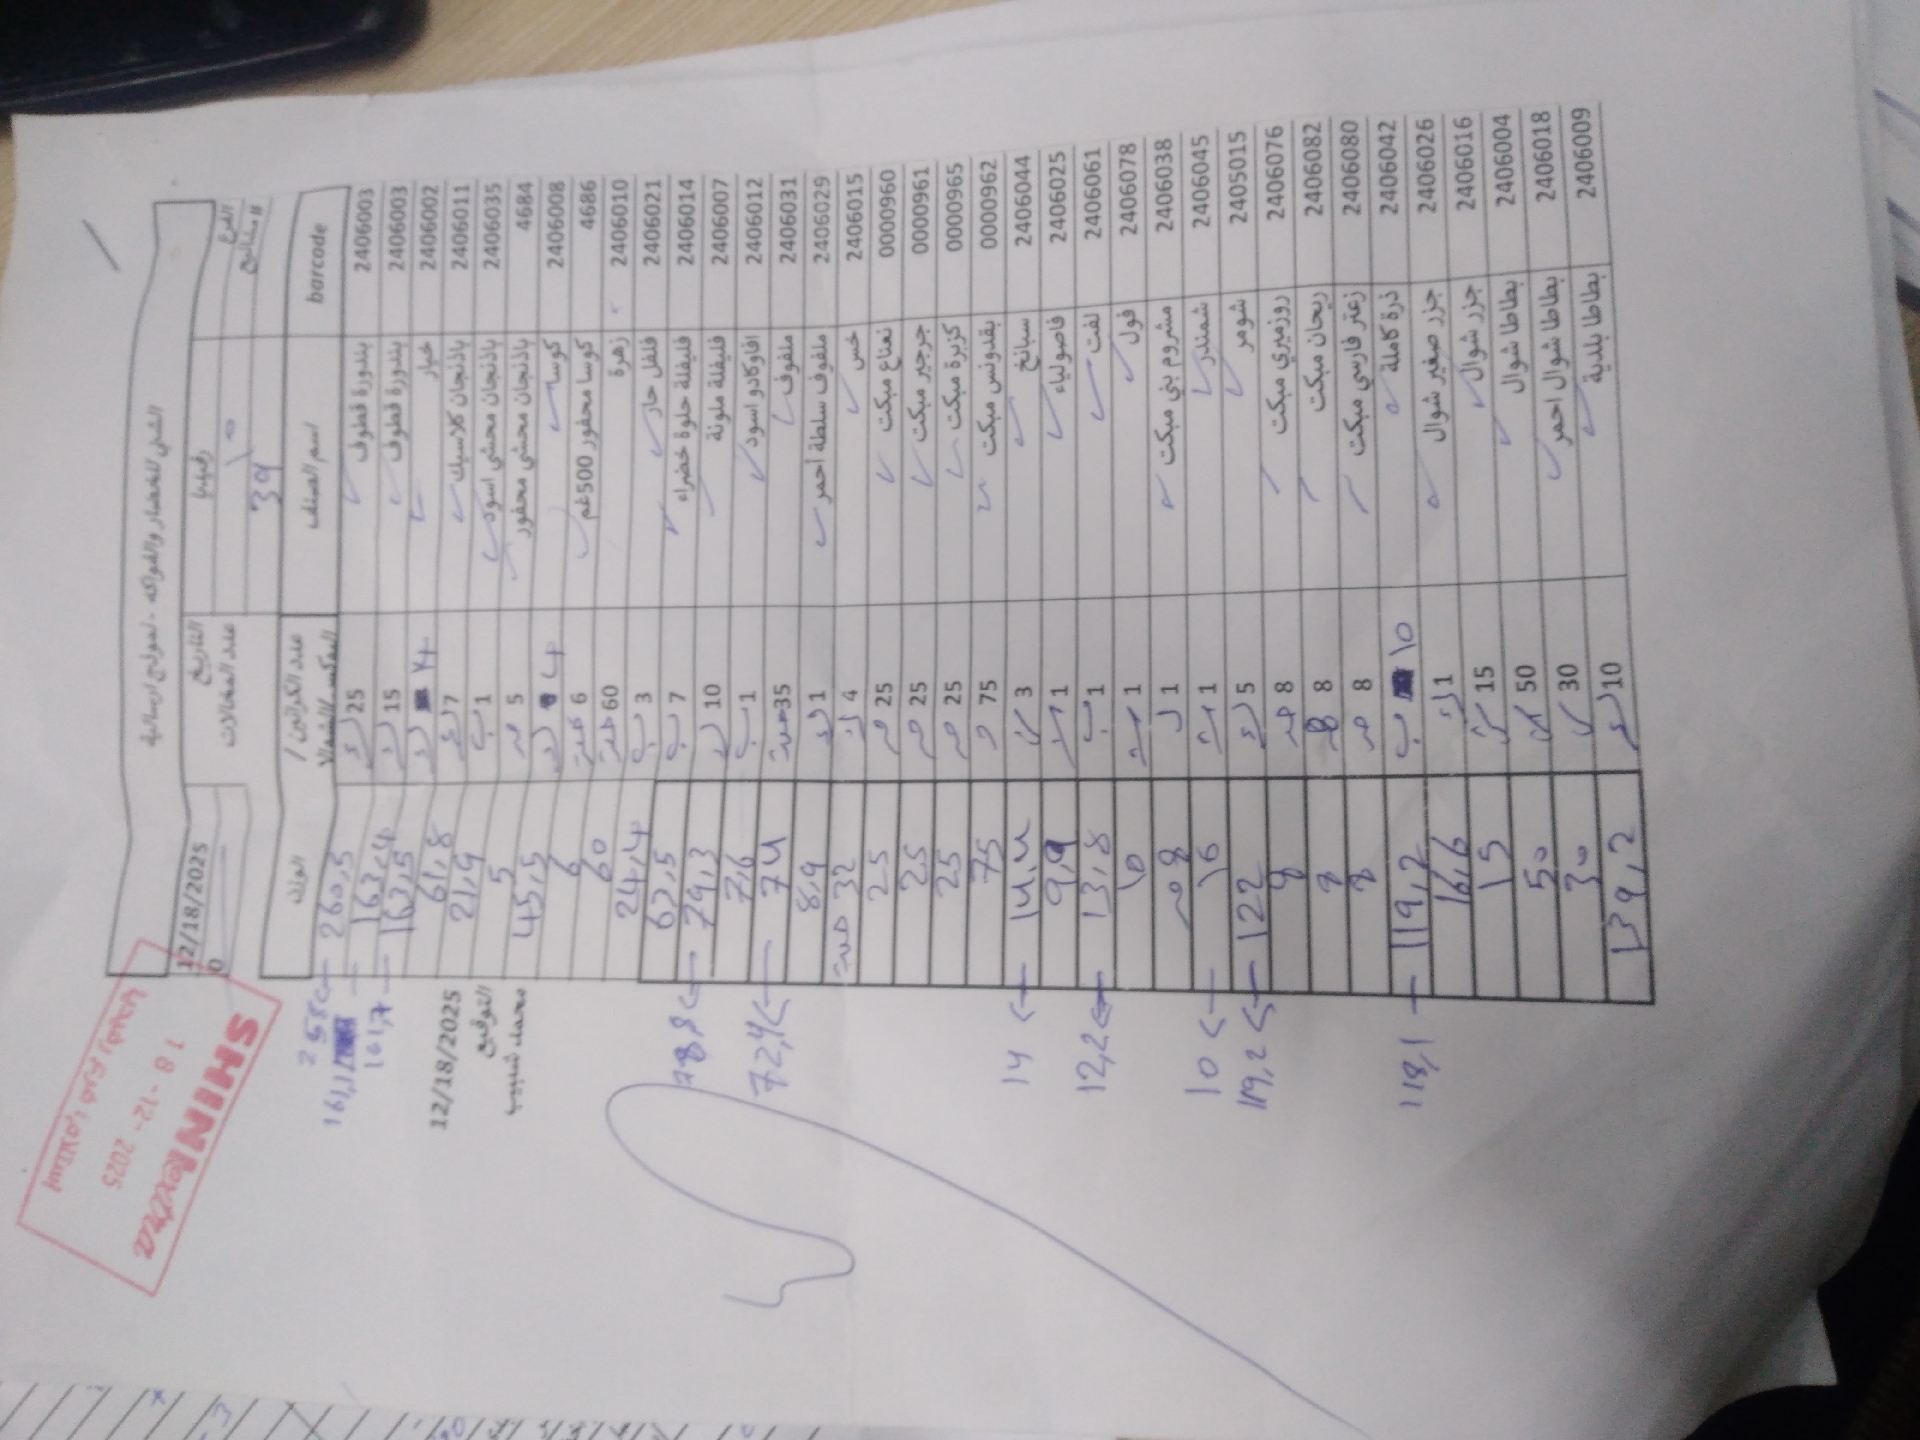 الشني للخضار والفواكه - نموذج ارسالية
12/18/2025 التاريخ رقمها الفرع
0 عدد المخالات
39
الوزن عدد الكراتين / اسم الصنف barcode
260,5 25 بندورة قطوف 2406003
163,4 15 بندورة قطوف 2406003
163,5 4 خيار 2406002
61,8 7 باذنجان كلاسيك 2406011
21,9 1 باذنجان محشي اسود 2406035
5 5 باذنجان محشي محفور 4684
45,5 4 كوسا 2406008
6 6 كوسا محفور 500غم 4686
60 60 زهرة 2406010
24,4 3 فلفل حار 2406021
7 فليفلة حلوة خضراء 2406014
79,3 10 فليفلة ملونة 2406007
7,6 1 افاوكادو اسود 2406012
74 35 ملفوف 2406031
8,9 1 ملفوف سلطة احمر 2406029
32 4 خس 2406015
25 25 نعناع مبكت 0000960
25 25 جرجير مبكت 0000961
25 25 كزبرة مبكت 0000965
75 75 بقدونس مبكت 0000962
3 سبانخ 2406044
9,9 1 فاصولياء 2406025
13,8 1 لفت 2406061
10 1 فول 2406078
8 1 مشروم بني مبكت 2406038
1 شمندر 2406045
122 5 شومر 2405015
8 8 روزميري مبكت 2406076
8 8 ريحان مبكت 2406082
8 8 زعتر فارسي مبكت 2406080
119,2 10 ذرة كاملة 2406042
16,6 1 جزر صغير شوال 2406026
15 15 جزر شوال 2406016
50 50 بطاطا شوال 2406004
30 30 بطاطا شوال احمر 2406018
139,2 10 بطاطا بلدية 2406009
258
161,7
12/18/2025
التوقيع
محمد شبيب
78,8
72,4
14
12,2
10
119,2
118,1
SHINI extra
18-12-2025